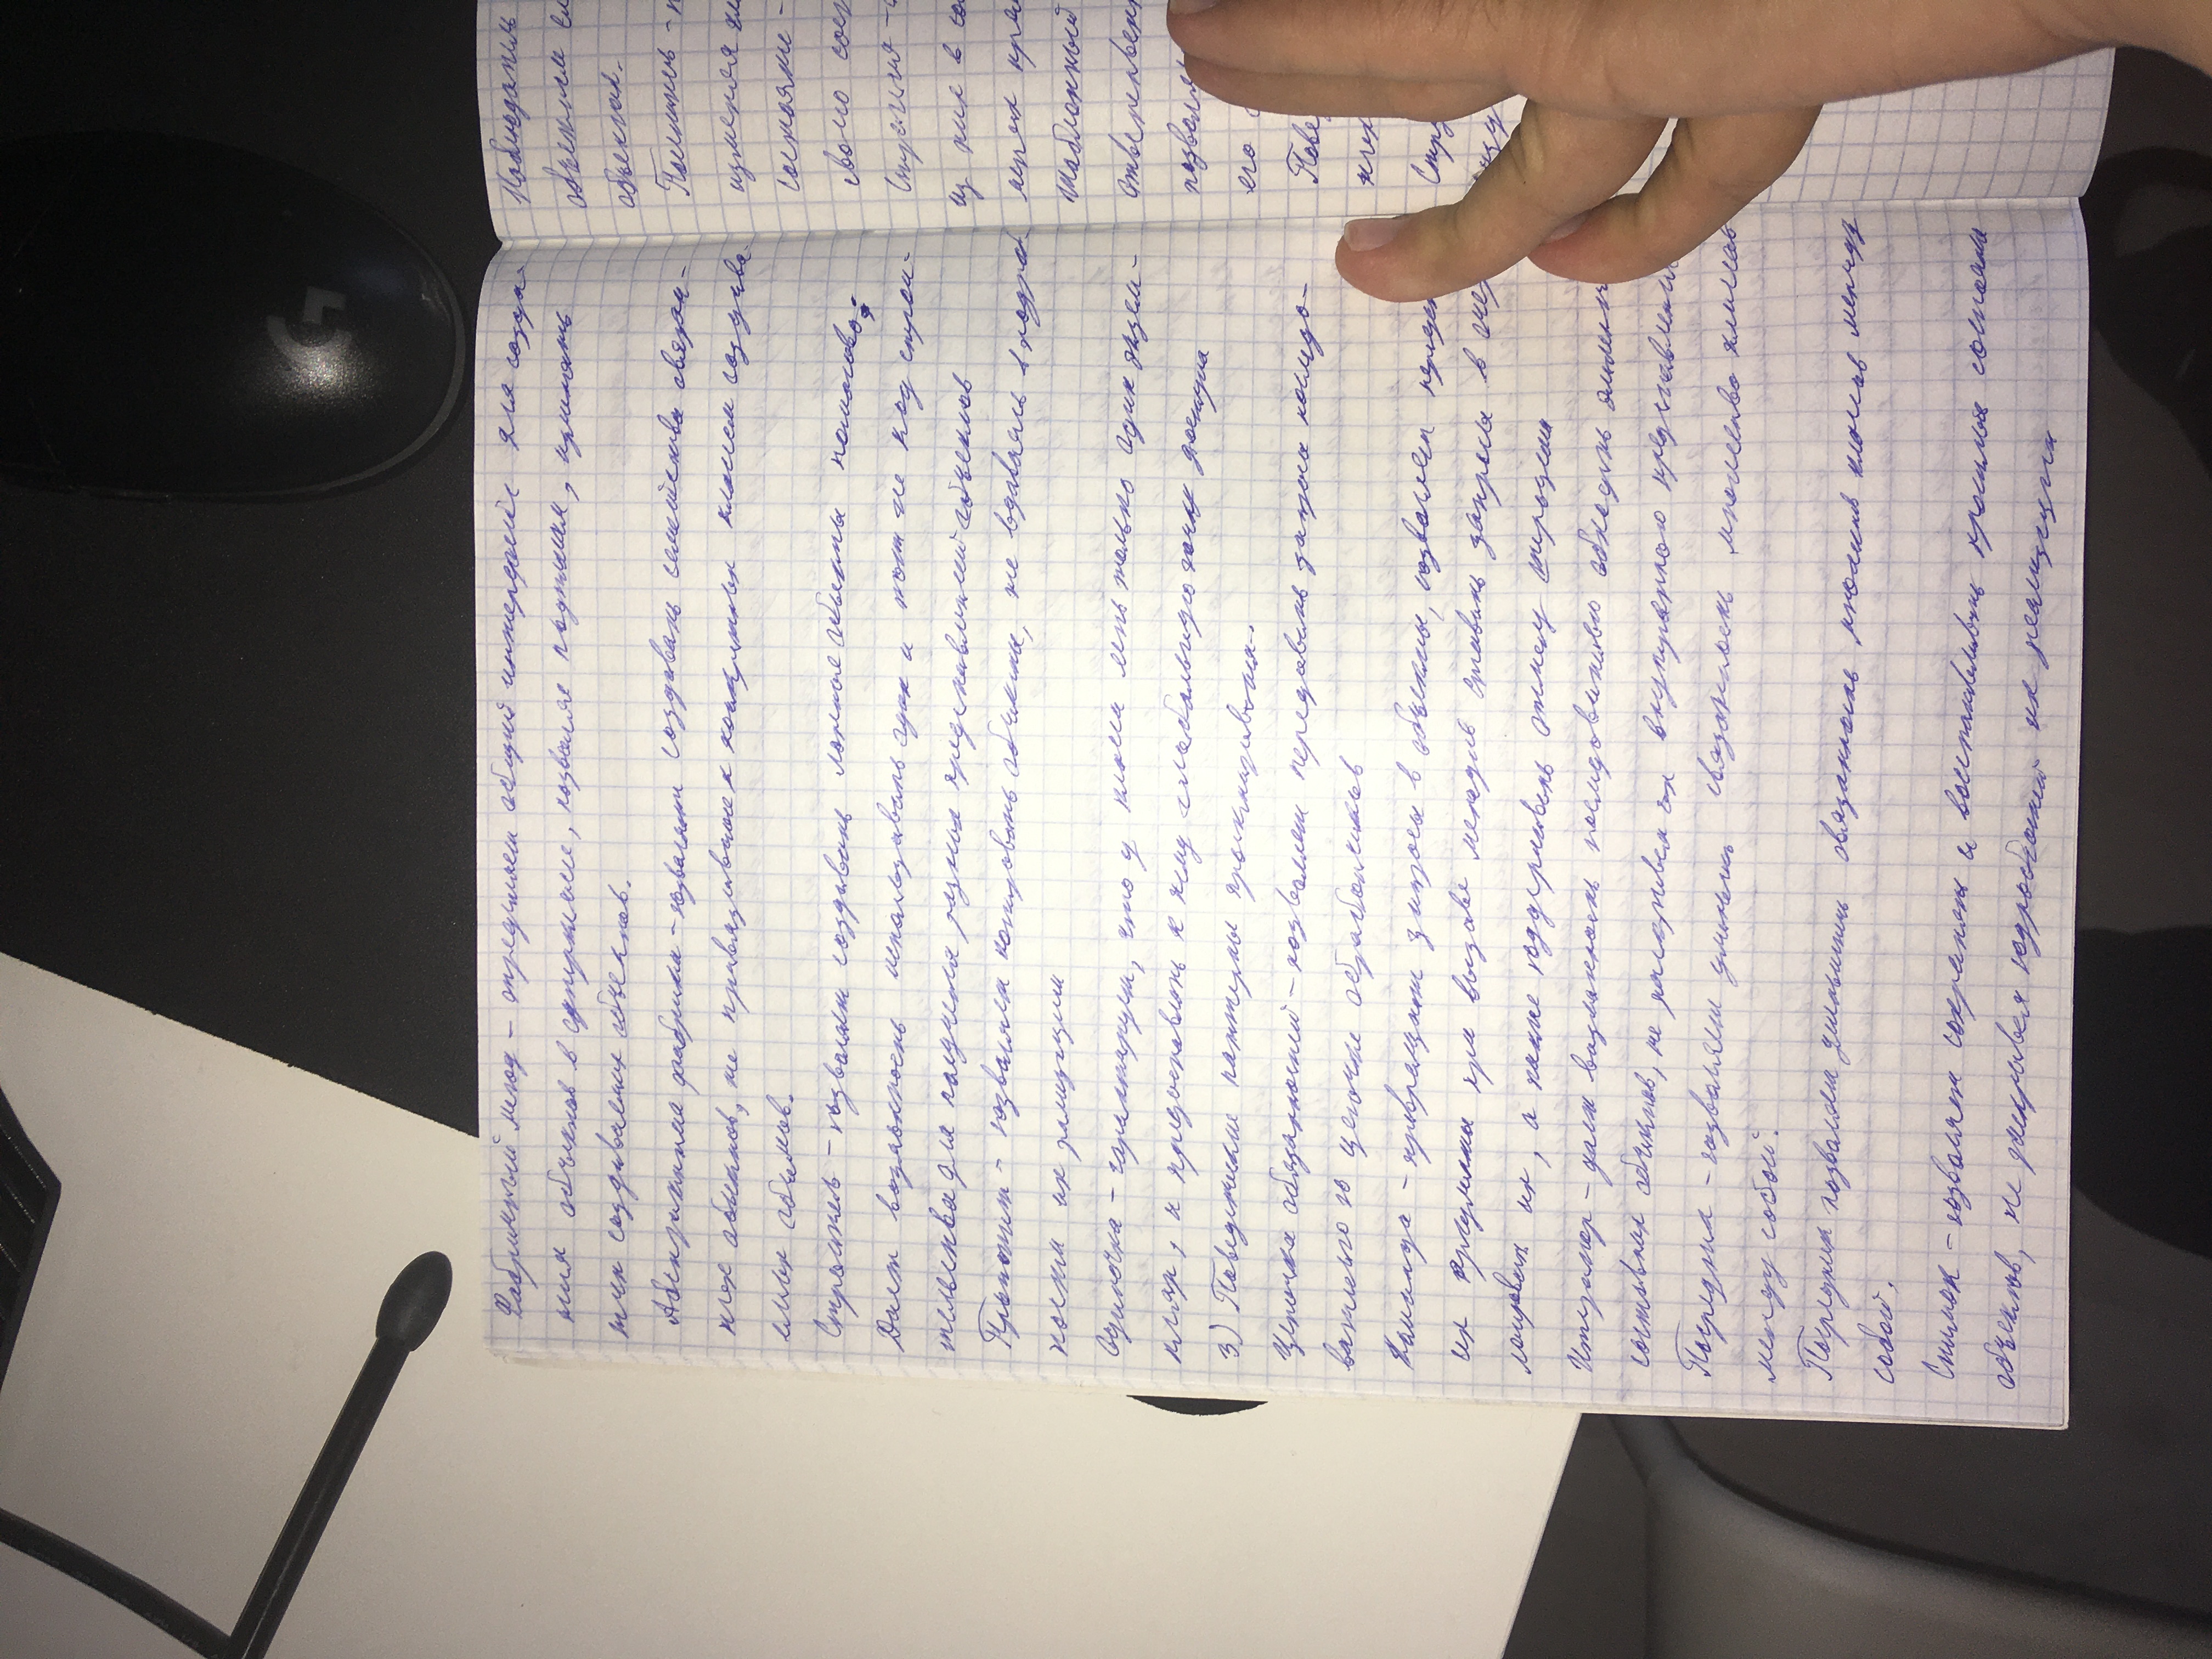 Фабричный метод – определяет общий интерфейс для созда-
ния объектов в суперклассе, позволяя подклассам, изменять
тип создаваемых объектов.
Абстрактная фабрика – позволяет создавать семейства связан-
ных объектов, не привязываясь к конкретным классам создава-
емых объектов.
Строитель – позволяет создавать сложные объекты пошагово.
Дает возможность использовать один и тот же код строи-
тельства для получения разных представлений объектов
Прототип – позволяет копировать объекты, не вдаваясь в подроб-
ности их реализации
Одиночка – гарантирует, что у класса есть только один экзем-
пляр, и предоставлять к нему глобальную точку доступа
3) Поведенческие паттерны проектирования.
Цепочка обязанностей – позволяет передавать запросы последо-
вательно по цепочке обработчиков
Команда – превращает запросы в объекты, позволяет
их аргументы при вызове методов ставить запросы в
логировать их, а также поддерживать отмену операции
Итератор – дает возможность последовательно обходить
составных объектов, не раскрывая их внутреннего
Посредник – позволяет уменьшить связанность множества классов
между собой.
Посредник позволяет уменьшить связанность множества классов между
собой.
Снимок – позволяет сохранять и восстанавливать прошлые состояния
объектов, не раскрывая подробностей их реализации
Наблюдатель
объектам
объектах.
изменяя
состояние –
своего
Стратегия –
из них в
Шаблонный
его
G